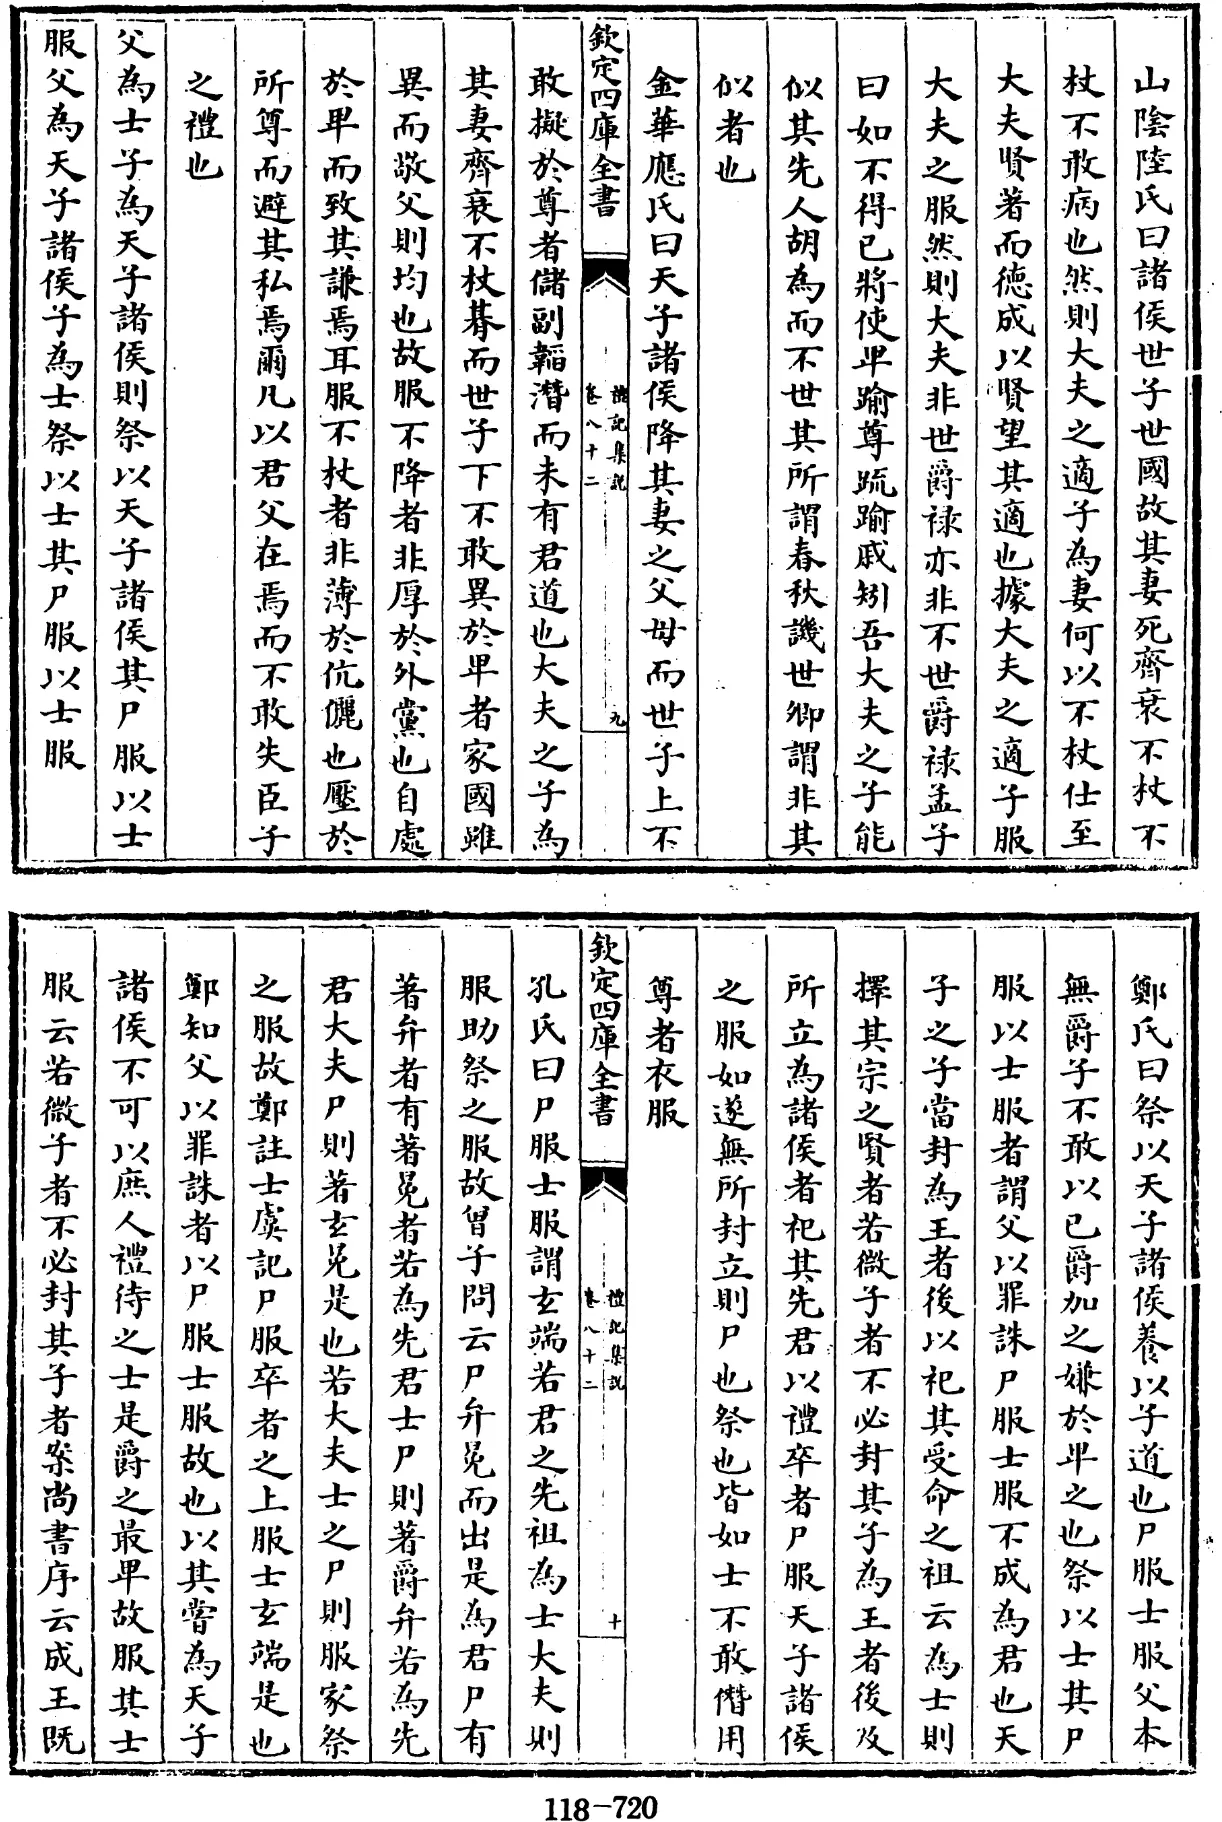 山陰陸氏曰諸侯世子世國故其妻死齊衰不杖不
杖不敢病也然則大夫之適子為妻何以不杖仕至
大夫賢著而德成以賢望其適也據大夫之適子服
大夫之服然則大夫非世爵祿亦非不世爵祿孟子
曰如不得已將使卑踰尊疏踰戚矧吾大夫之子能
似其先人胡為而不世其所謂春秋譏世卿謂非其
似者也
金華應氏曰天子諸侯降其妻之父母而世子上不
欽定四庫全書
禮記集説
卷八十二
九
敢擬於尊者儲副韜潛而未有君道也大夫之子為
其妻齊衰不杖朞而世子下不敢異於卑者家國雖
異而敬父則均也故服不降者非厚於外黨也自處
於卑而致其謙焉耳服不杖者非薄於伉儷也壓於
所尊而避其私焉爾凡以君父在焉而不敢失臣子
之禮也
父為士子為天子諸侯則祭以天子諸侯其尸服以士
服父為天子諸侯子為士祭以士其尸服以士服
鄭氏曰祭以天子諸侯養以子道也尸服士服父本
無爵子不敢以已爵加之嫌於卑之也祭以士其尸
服以士服者謂父以罪誅尸服士服不成為君也天
子之子當封為王者後以祀其受命之祖云為士則
擇其宗之賢者若微子者不必封其子為王者後及
所立為諸侯者祀其先君以禮卒者尸服天子諸侯
之服如遂無所封立則尸也祭也皆如士不敢僭用
尊者衣服
欽定四庫全書
禮記集説
卷八十二
十
孔氏曰尸服士服謂玄端若君之先祖為士大夫則
服助祭之服故曾子問云尸弁冕而出是為君尸有
著弁者有著冕者若為先君士尸則著爵弁若為先
君大夫尸則著玄冕是也若大夫士之尸則服家祭
之服故鄭註士虞記尸服卒者之上服士玄端是也
鄭知父以罪誅者以尸服士服故也以其嘗為天子
諸侯不可以庶人禮待之士是爵之最卑故服其士
服云若微子者不必封其子者案尚書序云成王既
118-720